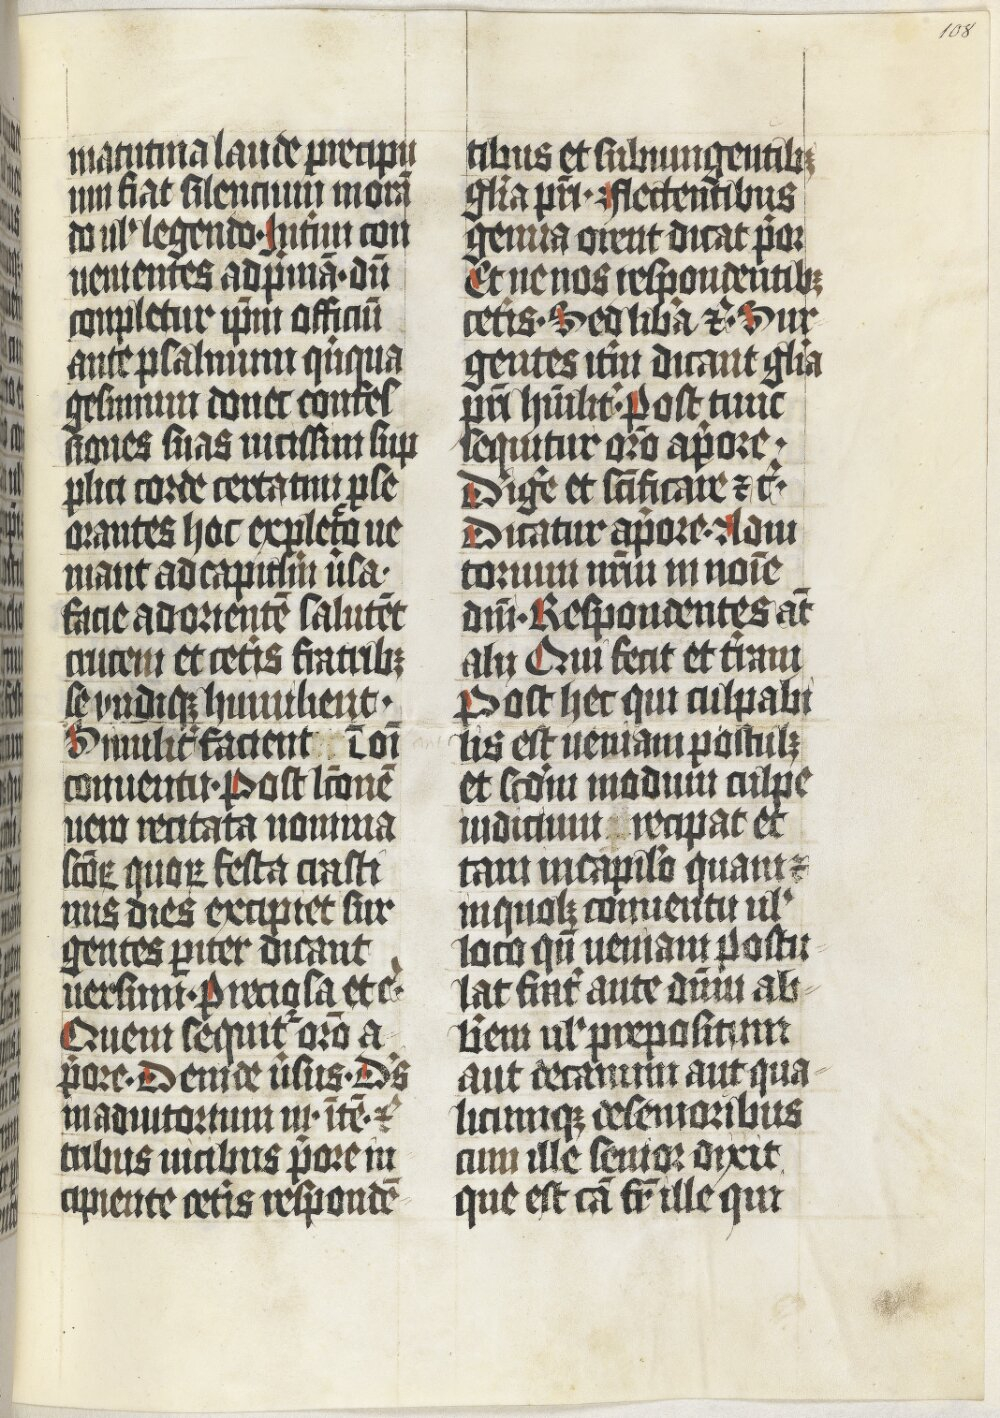 108
matutina laude precipu
um fiat silencium morā
do ul' legendo. Int'im con
uenientes ad p'mā. dū
completur ip̄m officiū
ante psalmum q̄nqua
gesimum donec confes
siones suas uicissim sup
plici corde certatim ꝑse
orantes hoc expleto ue
niant ad capitl'm u'sa.
facie ad orientē salutēt
crucem et cet'is fratribꝫ
se undiqꝫ humilient.
Similit' facient ī oī
conuentu. Post lc̄onē
uero recitata nomina
sc̄oꝝ quoꝝ festa crasti
nus dies excipiet sur
gentes pit̄er dicant
uersum̄. Preciosa et c̄.
Quem sequit' or̄o a
p'ore. Deinde u'sus. D's
in adiutorium m. ītē. ⁊
tribus uicibus p'ore in
cipiente cet'is respondē
tibus et subiungentibꝫ
gl'ia pr̄i. Flectentibus
genua orent dicat p'or
Et ne nos respondentibꝫ
cet'is. Sed lib'a ⁊ c̄. Sur
gentes it'm dicant gl'ia
pr̄i hūilit'. Post tunc
sequitur or̄o a p'ore.
Dig'e et sc̄ificare ⁊ c̄.
Dicatur a p'ore. Adiu
torium nr̄m in noīe
dn̄i. Respondentes āt
alij Qui fecit et t'ram
Post hec qui culpabi
lis est ueniam postulꝫ
et scd'm modum culpe
iudicium recipat et
tam in capit'lo quam ⁊
in quolꝫ conuentu ul'
loco qn̄ ueniam postu
lat sint' ante dn̄m ab
b'em ul' prepositum
aut decanum aut qua
licumqꝫ de senioribus
cum ille senior dixit
que est cā fr̄ ille qui